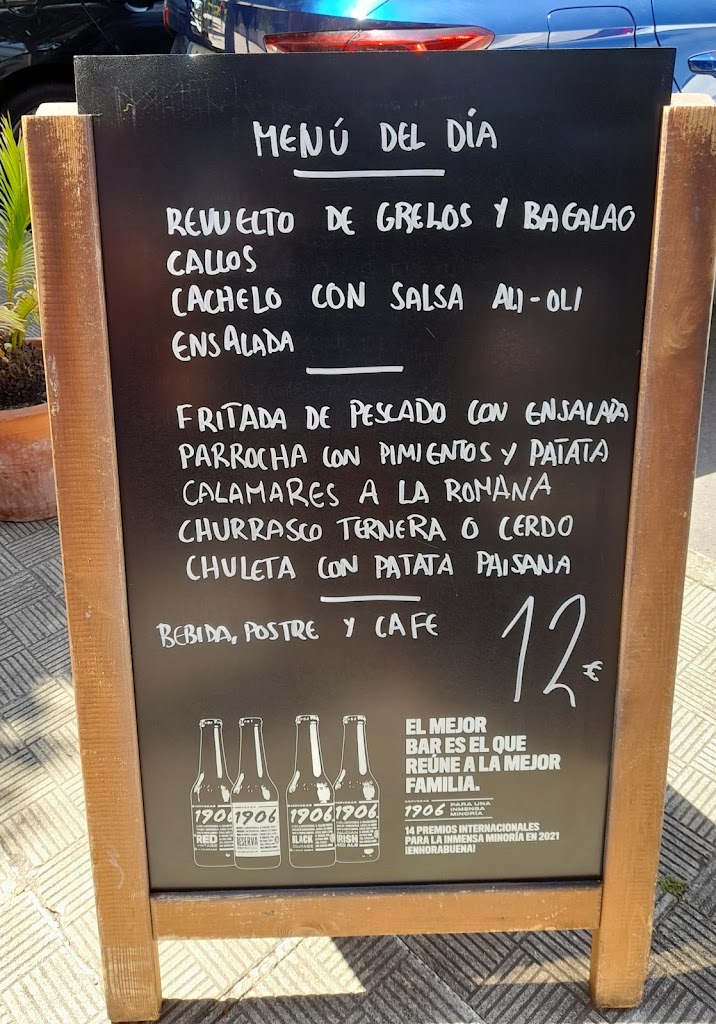 MENÚ DEL DÍA
REVUELTO DE GRELOS Y BACALAO
CALLOS
CACHELO CON SALSA ALI-OLI
ENSALADA
FRITADA DE PESCADO CON ENSALADA
PARROCHA CON PIMIENTOS Y PATATA
CALAMARES A LA ROMANA
CHURRASCO TERNERA O CERDO
CHULETA CON PATATA PAISANA
BEBIDA, POSTRE Y CAFE
12€
1906
RED
1906
RESERVA
1906
BLACK
1906
IRISH
RED ALE
EL MEJOR
BAR ES EL QUE
REÚNE A LA MEJOR
FAMILIA.
CERVEZAS
1906
PARA UNA
INMENSA
MINORÍA
14 PREMIOS INTERNACIONALES
PARA LA INMENSA MINORÍA EN 2021
¡ENHORABUENA!